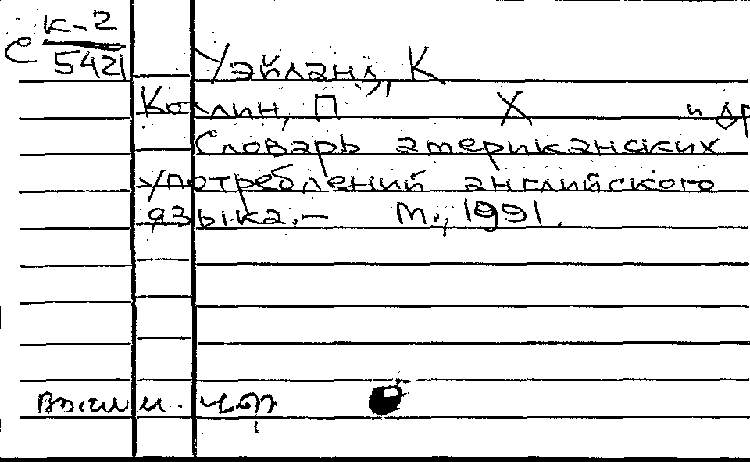 С К-2
5421
Уэйланд, К
Коллин, П Х и др
Словарь американских
употреблений английского
языка.— М., 1991.